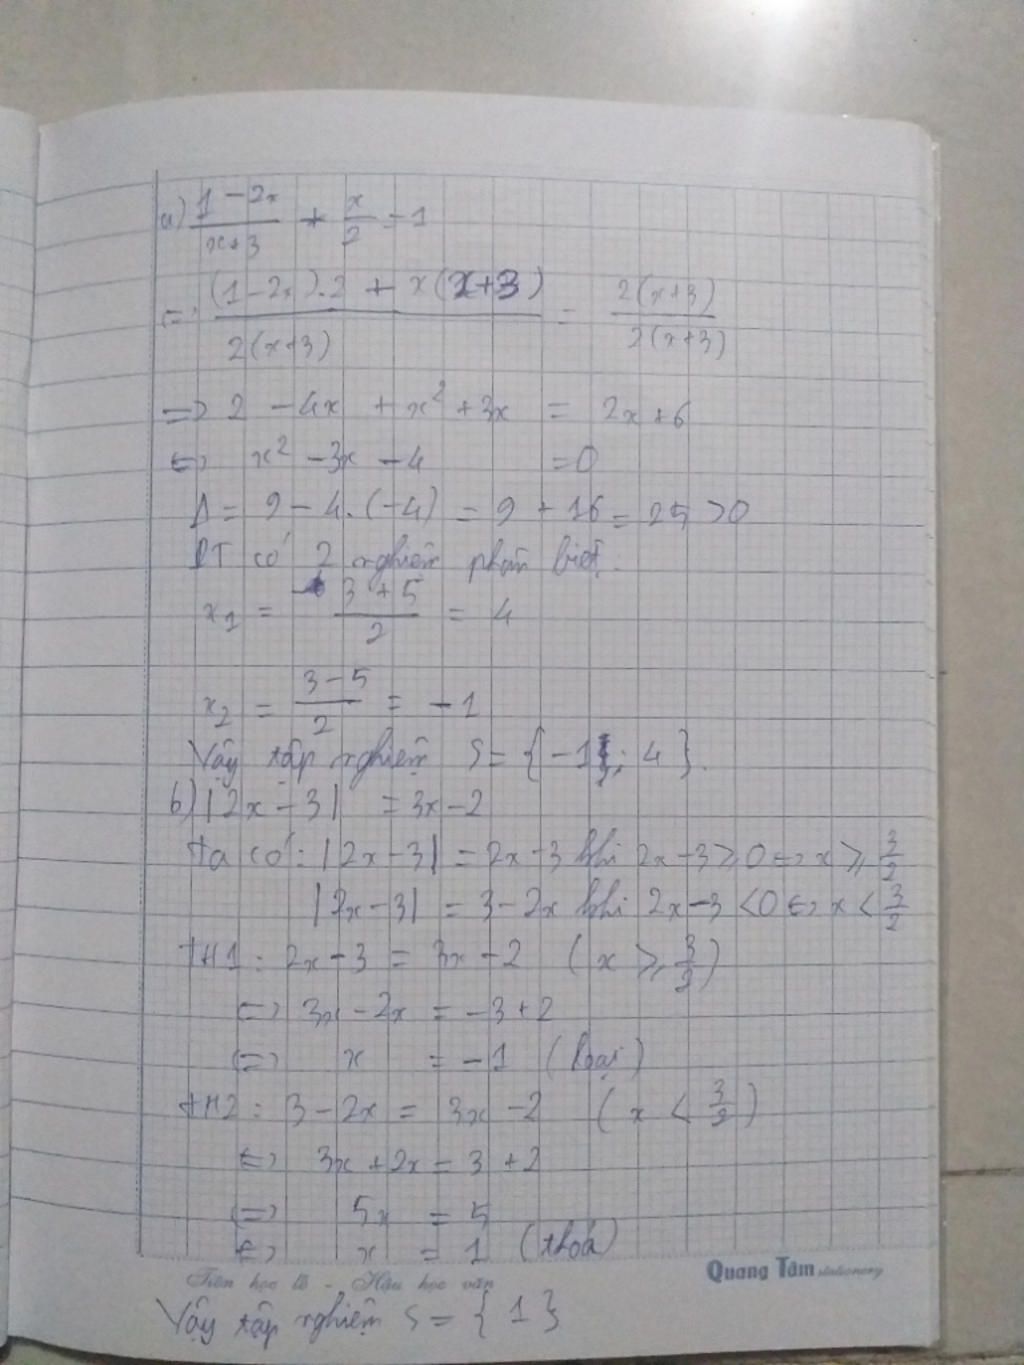 a) (1 - 2x)/(x+3) + x/2 = 1
<=> ((1-2x).2 + x(x+3))/(2(x+3)) = (2(x+3))/(2(x+3))
=> 2 - 4x + x² + 3x = 2x+6
<=> x² - 3x - 4 = 0
Δ = 9 - 4.(-4) = 9 + 16 = 25 > 0
PT có 2 nghiệm phân biệt.
x₁ = (3+5)/2 = 4
x₂ = (3-5)/2 = -1
Vậy tập nghiệm S = {-1; 4}.
b) |2x - 3| = 3x - 2
ta có: |2x-3| = 2x-3 khi 2x-3 ⩾ 0 <=> x ⩾ 3/2
|2x-3| = 3-2x khi 2x-3 < 0 <=> x < 3/2
TH1: 2x-3 = 3x-2 (x ⩾ 3/2)
<=> 3x - 2x = -3+2
<=> x = -1 (loại)
TH2: 3-2x = 3x-2 (x < 3/2)
<=> 3x+2x = 3+2
<=> 5x = 5
<=> x = 1 (thoả)
Tiên học lễ - Hậu học văn Quang Tâm stationery
Vậy tập nghiệm S = {1}